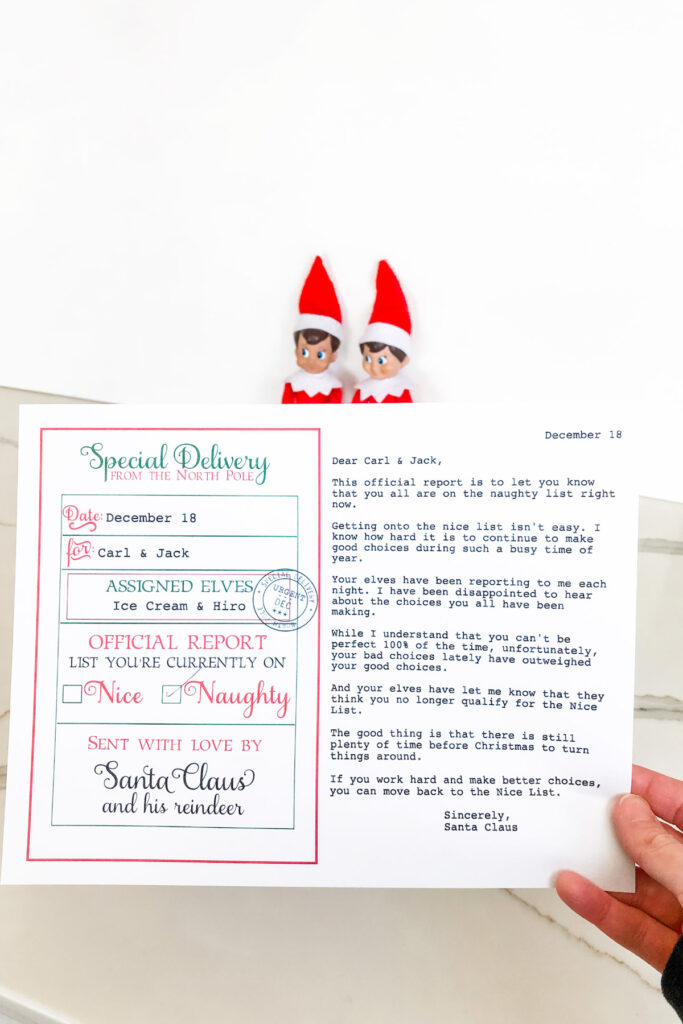 Special Delivery
FROM THE NORTH POLE
Date: December 18
for: Carl & Jack
ASSIGNED ELVES
Ice Cream & Hiro
SPECIAL DELIVERY
URGENT
DEC
OFFICIAL REPORT
LIST YOU'RE CURRENTLY ON
Nice Naughty
SENT WITH LOVE BY
Santa Claus
and his reindeer
December 18
Dear Carl & Jack,
This official report is to let you know
that you all are on the naughty list right
now.
Getting onto the nice list isn't easy. I
know how hard it is to continue to make
good choices during such a busy time of
year.
Your elves have been reporting to me each
night. I have been disappointed to hear
about the choices you all have been
making.
While I understand that you can't be
perfect 100% of the time, unfortunately,
your bad choices lately have outweighed
your good choices.
And your elves have let me know that they
think you no longer qualify for the Nice
List.
The good thing is that there is still
plenty of time before Christmas to turn
things around.
If you work hard and make better choices,
you can move back to the Nice List.
Sincerely,
Santa Claus